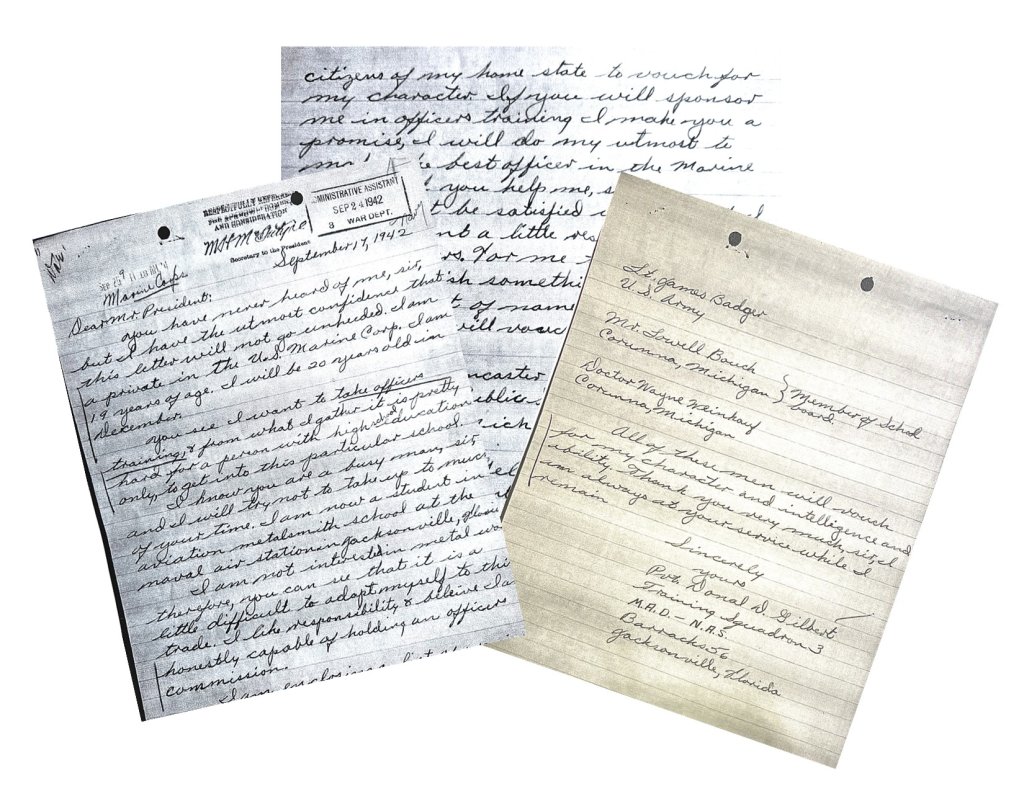 RESPECTFULLY REFERRED
AND CONSIDERATION
Secretary to the President
ADMINISTRATIVE ASSISTANT
SEP 24 1942
WAR DEPT.
September 17, 1942
Marine Corps
Dear Mr. President:
You have never heard of me, sir,
but I have the utmost confidence that
this letter will not go unheeded. I am
a private in the U.S. Marine Corp. I am
19 years of age. I will be 20 years old in
December.
You see I want to take officers
training, & from what I gather it is pretty
hard for a person with high education
only, to get into this particular school.
I know you are a busy man, sir,
and I will try not to take up to much
of your time. I am now a student in
aviation metalsmith school at the
naval air station in Jacksonville,
I am not interested in metal
therefore, you can see that it is a
little difficult to adapt myself to this
trade. I like responsibility & beleive I am
honestly capable of holding an officers
commission.
I am enclosing a list
citizens of my home state to vouch for
my character. If you will sponsor
me in officers training I make you a
promise, I will do my utmost to
best officer in the Marine
you help me,
be satisfied
a little
for me
something
of name
will vouch
Lt. James Badger
U.S. Army
Mr. Lowell Bauch
Corunna, Michigan
Doctor Wayne Weinkauf
Corunna, Michigan
} Member of School
board
All of these men will vouch
for my character and intelligence and
ability. Thank you very much, sir, I
am always at your service while I
remain
Sincerely
yours
Pvt. Donal D. Gilbert
Training Squadron 3
M.A.D. - N.A.S.
Barracks 56
Jacksonville, Florida